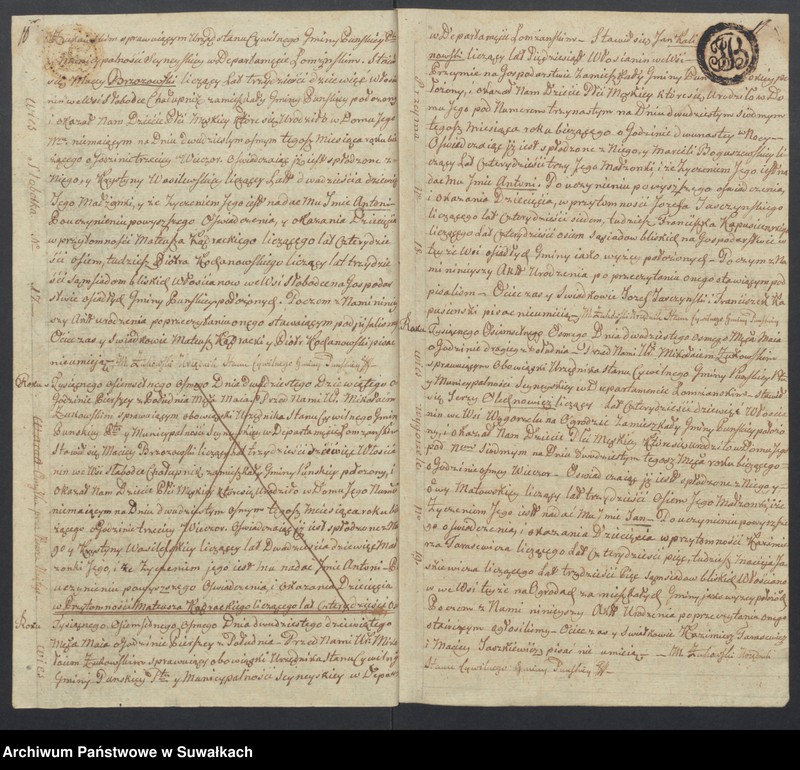 Żukowskim sprawującym Urząd Stanu Cywilnego Gminy Puńskiey Ptu
y Municypalności Seyneyskiey w Departamencie Łomżyńskim. Stawił
się Maciey Brzozowski liczący lat trzydzieści dziewięć Włościa
nin we Wsi Słobodce Chałupnik zamieszkały Gminy Puńskiey położoney
i okazał Nam Dziecie Płci Męskiey które się Urodziło w Domu Jego
Nru niemaiącym na Dniu dwudziestym osmym tegoż Miesiąca roku bie
żącego o godzinie trzeciey Wieczor. Oświadczaiąc iż iest spłodzone z
Niego, y Krystyny Wasilewskiey liczącey lat dwadzieścia dziewięć
Jego Małżonki, y że życzeniem Jego iest nadać Mu Imie Antoni
Po uczynieniu powyższego Oświadczenia, y okazania Dziecięcia
w przytomności Mateusza Kądrackiego liczącego lat Czterydzie
ści osiem, tudzież Piotra Kochanowskiego liczący lat trzydzie
ści Sąmsiadom bliskich Włościanow we Wsi Słobodce na Gospodar
stwie osiadłych Gminy Puńskiey położonych. Poczem z Nami niniey
szy Akt urodzenia po przeczytaniu onego stawaiącym podpisaliśmy
Ociec zaś y Świadkowie Mateusz Kądracki y Piotr Kochanowski pisać
nieumieją. M. Żukowski Urzędnik Stanu Cywilnego Gminy Puńskiey
Roku Tysiącznego osiemsetnego osmego Dnia Dwudziestego Dziewiątego o
Godzinie Pierszey z Południa Mca Maia. Przed Nami Wm Mikołaiem
Żukowskim sprawuiącym obowiązki Urzędnika Stanu Cywilnego Gminy
Puńskiey Ptu y Municypalności Seyneyskiey w Departamencie Łomżyńskim
Stawił się Maciey Brzozowski liczący lat trzydzieści dziewięć Włościa
nin we Wsi Słobodce Chałupnik zamieszkały Gminy Puńskiey położoney, i
okazał Nam Dziecie Płci Męskiey które się Urodziło w Domu Jego Numeru
niemaiącym na Dniu dwudziestym osmym tegoż Miesiąca roku bie
żącego. O godzinie trzeciey Wieczor. Oświadczaiąc iż iest spłodzone z Nie
go y Krystyny Wasilewskiey liczący lat Dwadzieścia dziewięć Mał
żonki Jego, i że życzeniem jego iest mu nadać Imie Antoni. Po
uczynieniu powyższego Oświadczenia, i okazania Dziecięcia
w Przytomności Mateusza Kądrackiego liczącego lat Czterydzieści os
Roku Tysiącznego Osiemsetnego Osmego Dnia dwudziestego dziewiątego
Mca Maia o Godzinie Pierszey z Południa. Przed Nami Wm Miko
łaiem Żukowskim sprawuiący obowiązki Urzędnika Stanu Cywilney
Gminy Puńskiey Ptu y Municypalności Seyneyskiey w Depart
w Departamencie Łomżyńskim. Stawił się Jan Kali
nowski liczący lat Pięćdziesiąt Włościanin we Wsi
na Gospodarstwie Zamieszkały Gminy Puńskiey po
łożony, i okazał Nam Dziecie Płci Męskiey które się Urodziło w Do
mu Jego pod Numerem trzynastym na Dniu dwudziestym siodmym
tegoż miesiąca roku bieżącego o Godzinie dwunastey w Nocy
Oświadczaiąc iż iest spłodzone z Niego, y Maryanny Boguszewskiey li
czący lat Czterydzieści trzy Jego Małżonki, i że życzeniem Jego iest na
dać Mu Imie Antoni. Po uczynieniu powyższego oświadczenia,
i okazania Dziecięcia, w przytomności Jozefa Jaszczyńskiego
liczącego lat Czterydzieści siedm, tudzież Franciszka Kapuścińskiego
liczącego lat Czterydzieści osiem Sąsiadow bliskich na Gospodarstwie w
teyże Wsi osiadłych Gminy iako wyżey położonych. Poczym z Na
mi ninieyszy Akt Urodzenia po przeczytaniu onego stawaiącym pod
pisaliśmy. Ociec zaś y Świadkowie Jozef Jaszczyński, Franciszek Ka
puściński pisać nieumieją. M. Żukowski Urzędnik Stanu Cywilnego Gminy Puńskiey
Roku Tysiącznego Osiemsetnego Osmego Dnia dwudziestego osmego Mca Maia
o Godzinie drugiey z Południa. Przed Nami Wm Mikołaiem Żukowskim
sprawuiącym Obowiązki Urzędnika Stanu Cywilnego Gminy Puńskiey Ptu
y Municypalności Seyneyskiey w Departamencie Łomżyńskim. Stawił
się Jerzy Olechnowicz liczący lat Czterydzieści dziewięć Włościa
nin we Wsi Wygorzelu na Ogrodzie zamieszkały Gminy Puńskiey położo
ny, i okazał Nam Dziecie Płci Męskiey które się urodziło w Domu Jego
pod Nrem Siodmym na Dniu dwudziestym tegoż Mca roku bieżącego
o Godzinie osmey Wieczor. Oświadczaiąc iż iest spłodzone z Niego y
Ewy Matowskiey liczący lat trzydzieści Osiem Jego Małżonki, i że
życzeniem Jego iest nadać Mu Imie Jan. Po uczynieniu powyższe
go oświadczenia, i okazania Dziecięcia w przytomności Kazimie
rza Tarasewicza liczącego lat Czterydzieści pięć, tudzież Macieja Ja
szkiewicza liczącego lat trzydzieści Pięć Sąmsiadow bliskich Włościano
w we Wsi teyże na Ogrodach zamieszkałych Gminy, jako wyżey położoney
Poczem z Nami ninieyszy Akt Urodzenia po przeczytaniu onego
stawaiącym ogłosiliśmy. Ociec zaś y Świadkowie Kazimierz Tarasewicz
i Maciey Jaszkiewicz pisać nie umieią. M. Żukowski Urzędnik
Stanu Cywilnego Gminy Puńskiey
Archiwum Państwowe w Suwałkach